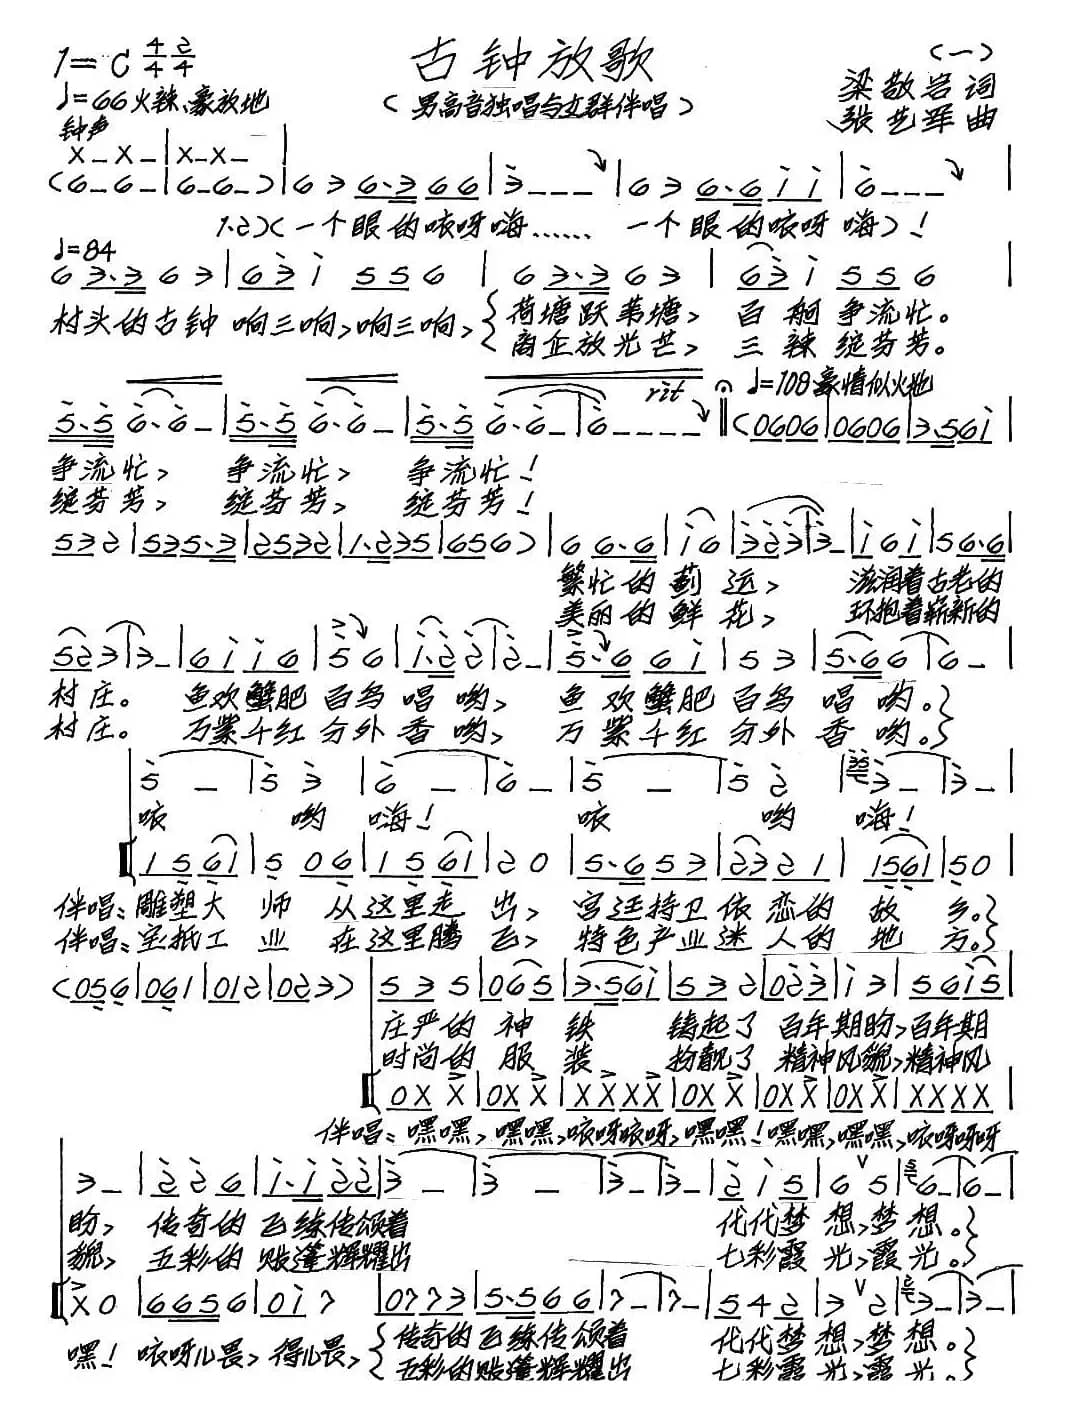 古钟放歌
(一)
1=C 4/4 2/4
♩=66 火辣、豪放地
(男高音独唱与女群伴唱)
梁敬岩 词
张艺军 曲
钟声
X – X – | X – X – |
(6 – 6 – | 6 – 6 – ) | 6 3 6·3 6 6 | 3 – – – | 6 3 6·6 i i | 6 – – – |
1.2.)(一个眼的咴呀嗨…… 一个眼的咴呀嗨)!
♩=84
6 3·3 6 3 | 6 3 i 5 5 6 | 6 3·3 6 3 | 6 3 i 5 5 6 |
村头的古钟 响三响,响三响, 荷塘跃苇塘, 百舸争流忙。
商企放光芒, 三辣绽芬芳。
rit ♩=108 豪情似火地
5·5 6·6 – | 5·5 6·6 – | 5·5 6·6 – | 6 – – – – ‖ (0606 | 0606 | 3·56i |
争流忙, 争流忙, 争流忙!
绽芬芳, 绽芬芳, 绽芬芳!
532 | 535·3 | 2532 | 1·235 | 656) | 6 6·6 | i 6 | 3233 | 3 – | i 6 i | 5 6·6 |
繁忙的蓟运, 滋润着古老的
美丽的鲜花, 环抱着崭新的
523 | 3 – | 6 i i 6 | 5 6 | i·2 2 | 2 – | 5·6 6 i | 5 3 | 5·6 6 | 6 – |
村庄。 鱼欢蟹肥 百鸟 唱哟, 鱼欢蟹肥 百鸟 唱哟。
村庄。 万紫千红 分外 香哟, 万紫千红 分外 香哟。
5 – | 5 3 | 6 – | 6 – | 5 – | 5 2 | 3 – | 3 – |
咴 哟 嗨! 咴 哟 嗨!
1 5 6 i | 5 0 6 | 1 5 6 i | 2 0 | 5·6 5 3 | 2 3 2 1 | 1 5 6 1 | 5 0 |
伴唱:雕塑大师 从这里走出, 宫廷持卫依恋的故乡。
伴唱:宝抵工业 在这里腾飞, 特色产业迷人的地方。
(056 | 061 | 012 | 023) | 5 3 5 | 0 6 5 | 3·56i | 5 3 2 | 0 2 3 | i 3 | 5 6 i 5 |
庄严的神铁 铸起了百年期盼,百年期
时尚的服装 扮靓了精神风貌,精神风
0 X X | 0 X X | X X X X | 0 X X | 0 X X | 0 X X | X X X X |
伴唱:嘿嘿,嘿嘿,咴呀咴呀,嘿嘿!嘿嘿,嘿嘿,咴呀呀呀
3 – | 2 2 6 | i·i 2 2 | 3 – | 3 – | 3 – | 3 – | 2 i 5 | 6 5 | 6 – | 6 – |
盼, 传奇的飞练传颂着 代代梦想,梦想。
貌, 五彩的账篷辉耀出 七彩霞光,霞光。
X 0 | 6 6 5 6 | 0 i 7 | 0 7 7 3 | 5·5 6 6 | 7 – | 7 – | 5 4 2 | 3 2 | 3 – | 3 – |
嘿!咴呀儿畏,得儿畏, 传奇的飞练传颂着 代代梦想,梦想。
五彩的账篷辉耀出 七彩霞光,霞光。